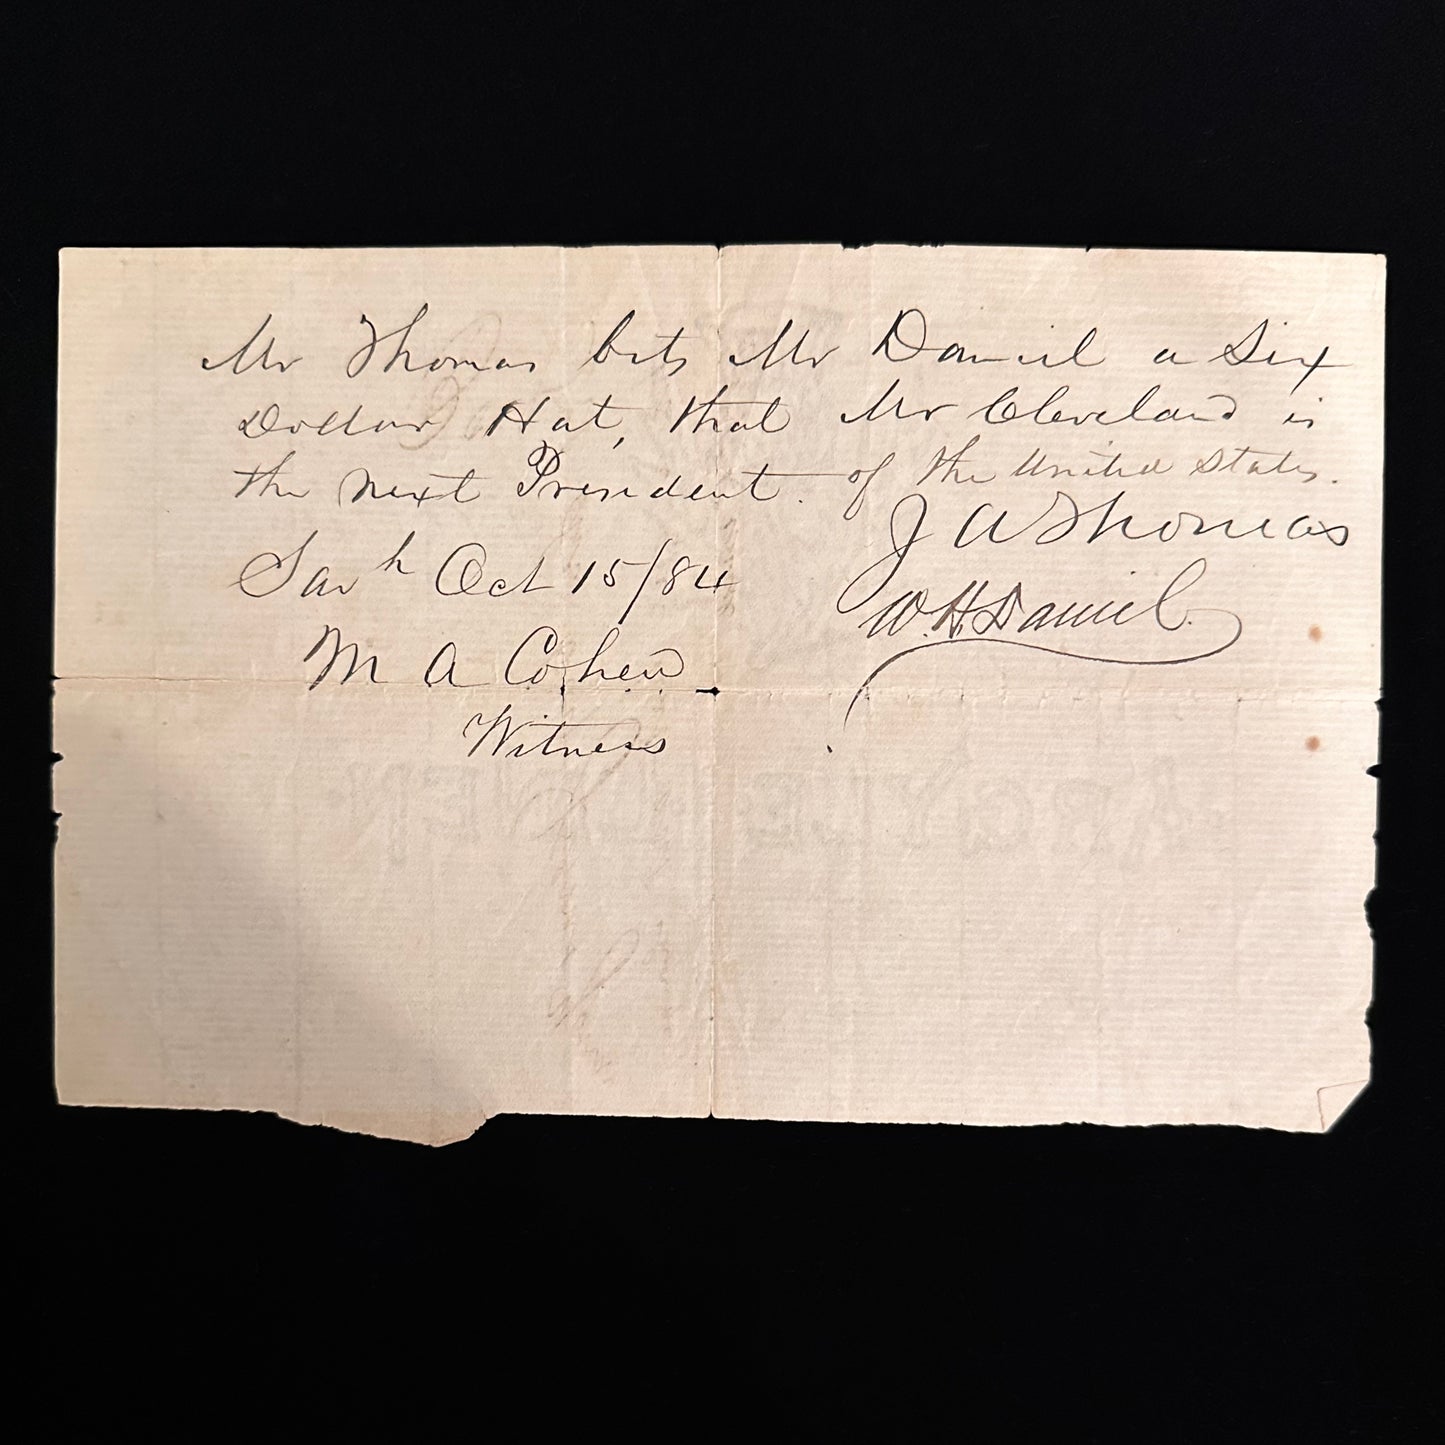 Mr Thomas bets Mr Daniel a Six
Dollar Hat, that Mr Cleveland is
the next President of the United States.
J A Thomas
Savh Oct 15/84
W. H. Daniel.
M A Cohen
Witness
ARGYLE LINEN